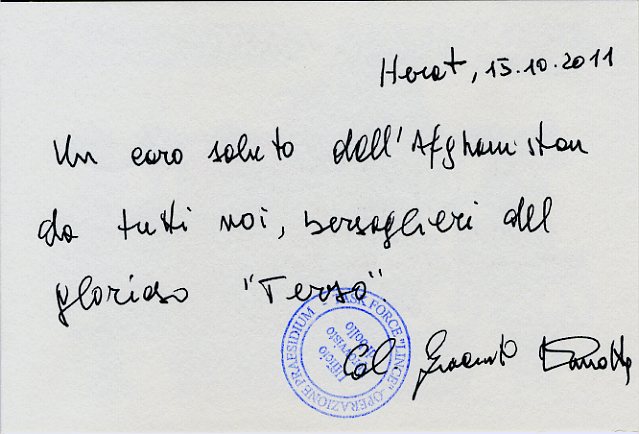 Herat, 15.10.2011
Un caro saluto dall'Afghanistan
da tutti noi, bersaglieri del
glorioso "Terzo".
TASK FORCE "LINCE" - OPERAZIONE PRAESIDIUM
Ufficio
di bollo
Col